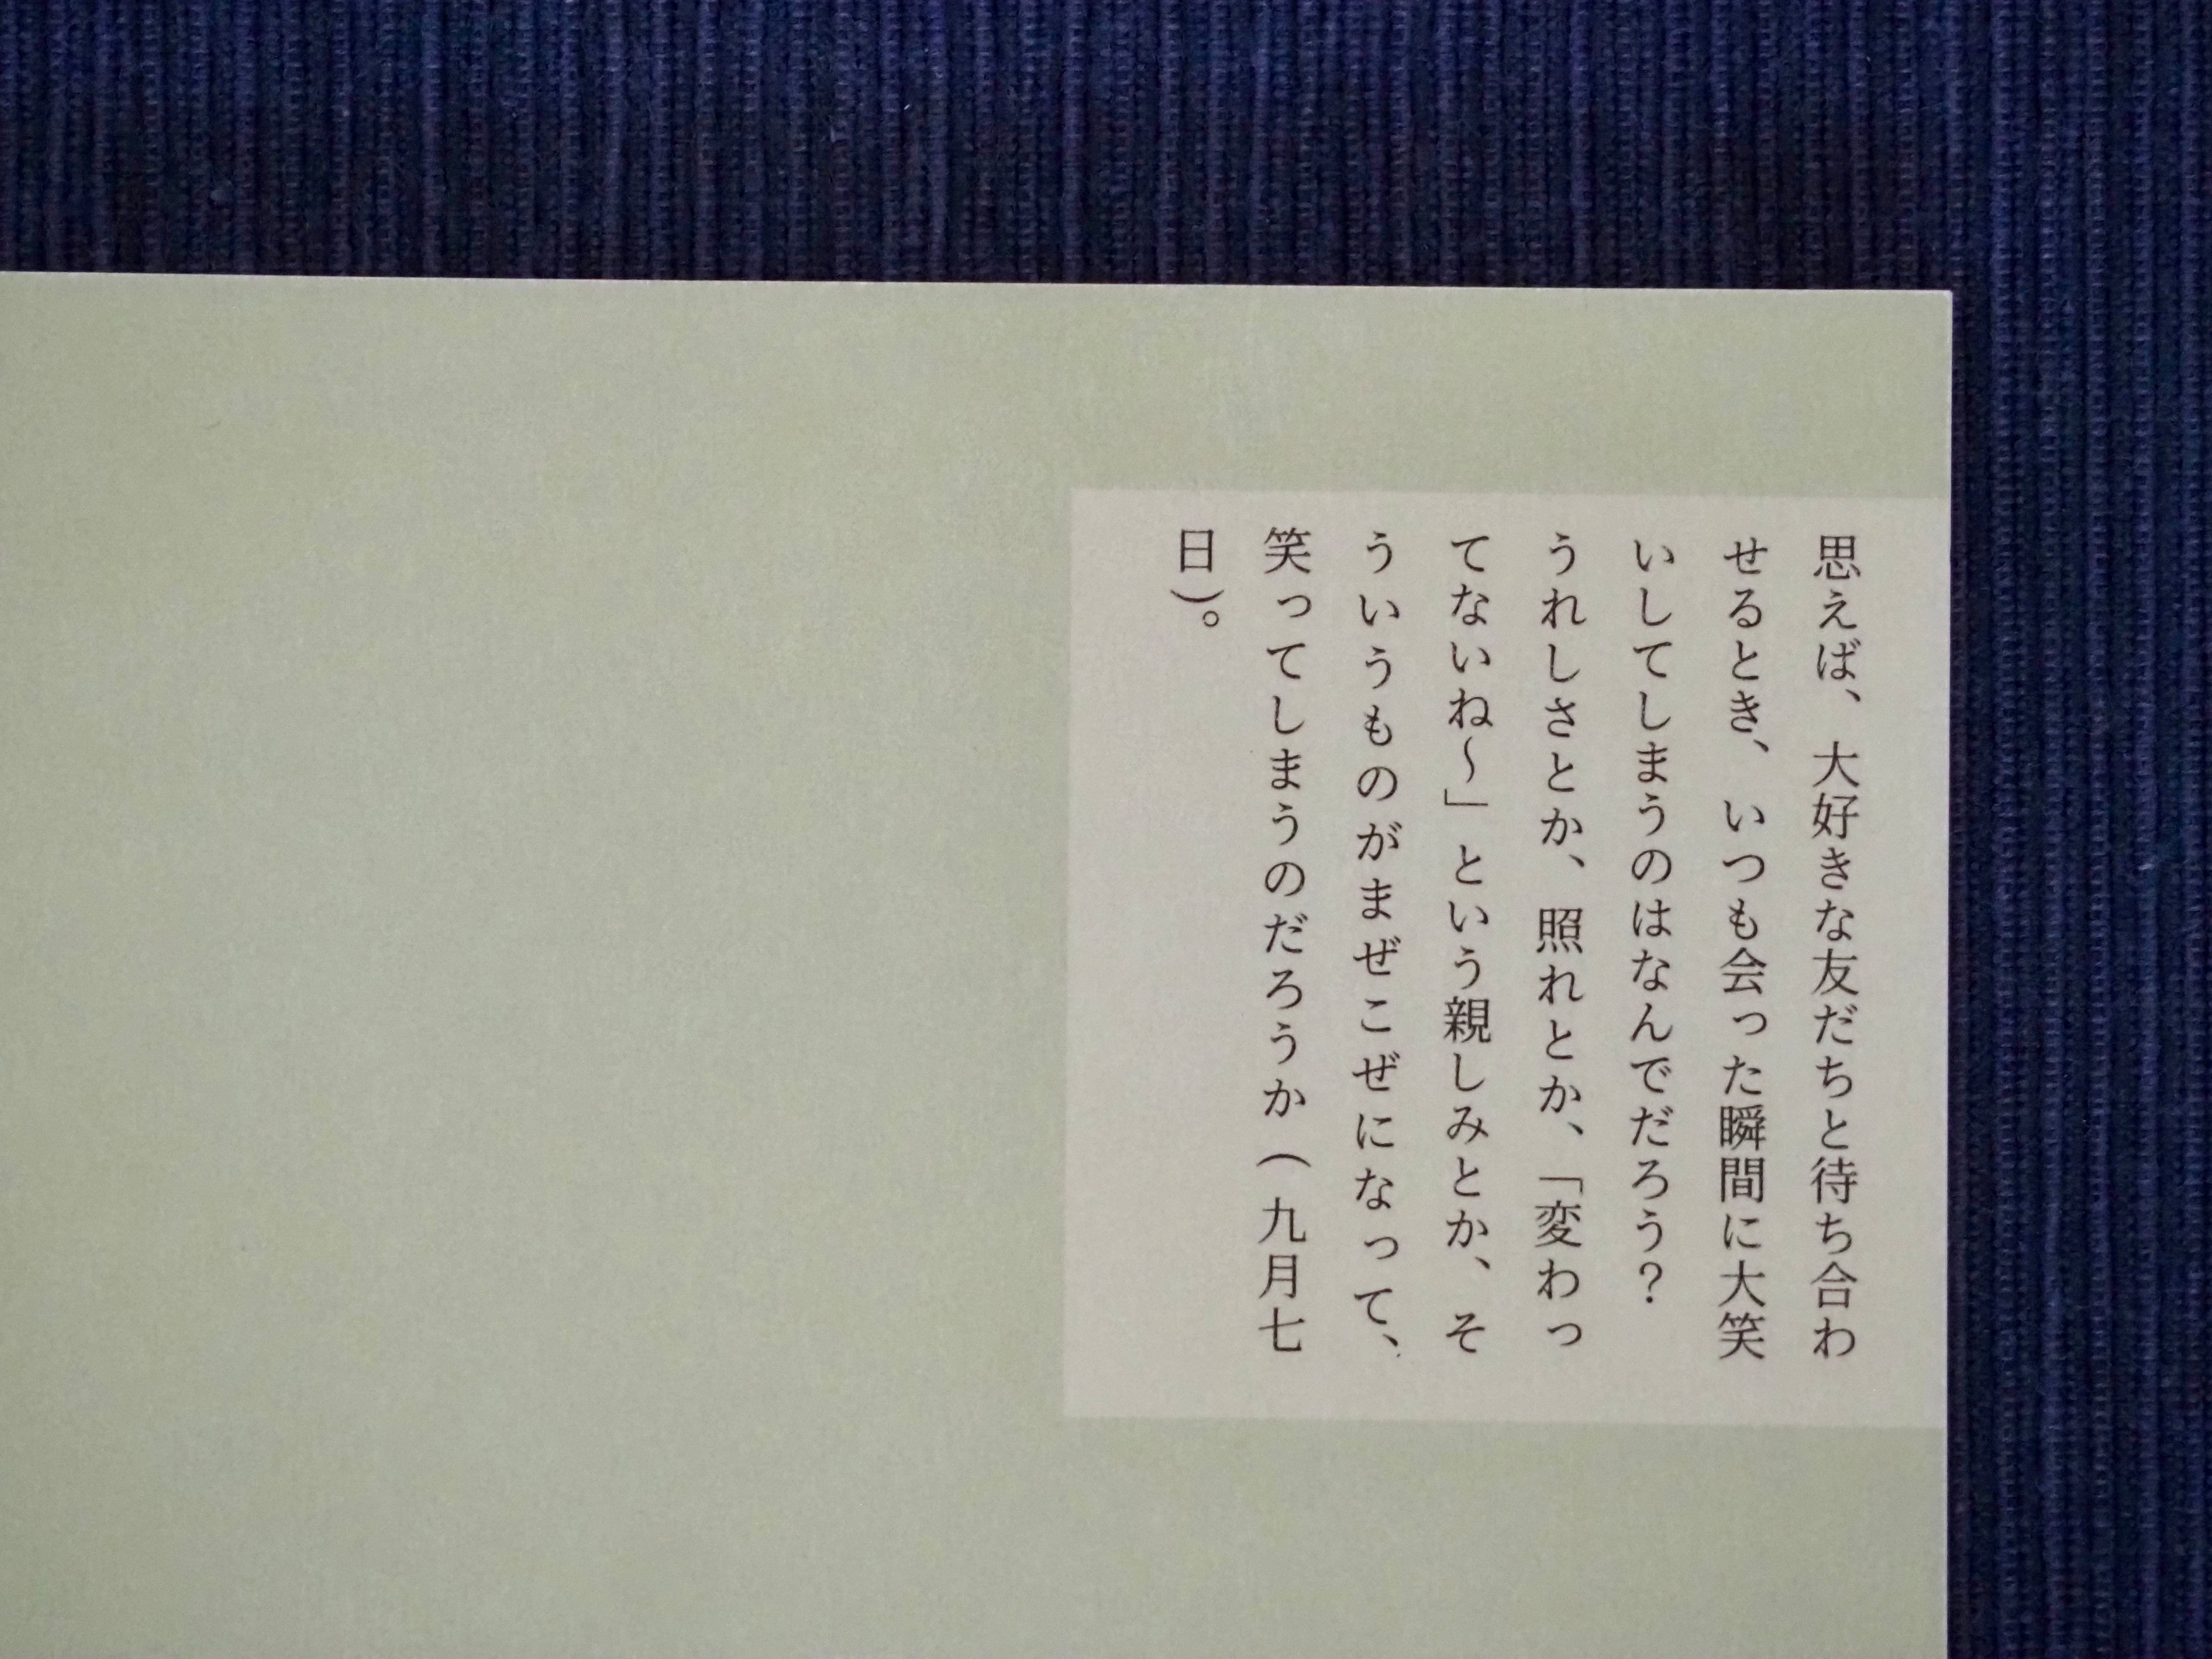 思えば、大好きな友だちと待ち合わ
せるとき、いつも会った瞬間に大笑
いしてしまうのはなんでだろう？
うれしさとか、照れとか、「変わっ
てないね～」という親しみとか、そ
ういうものがまぜこぜになって、
笑ってしまうのだろうか（九月七
日）。